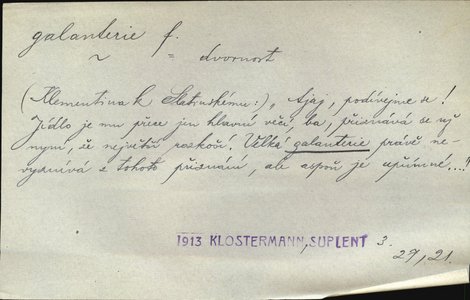 galanterie f.
~ = dvornost
(Klementina k Slatinskému:) „Ajaj, podívejme se!
Jídlo je mu přece jen hlavní věcí, ba, přiznává se nyní
nyní, že největší rozkoší. Velká galanterie právě ne-
vyznívá z tohoto přiznání, ale aspoň je upřímné...."
1913 KLOSTERMANN, SUPLENT 3.
29, 21.